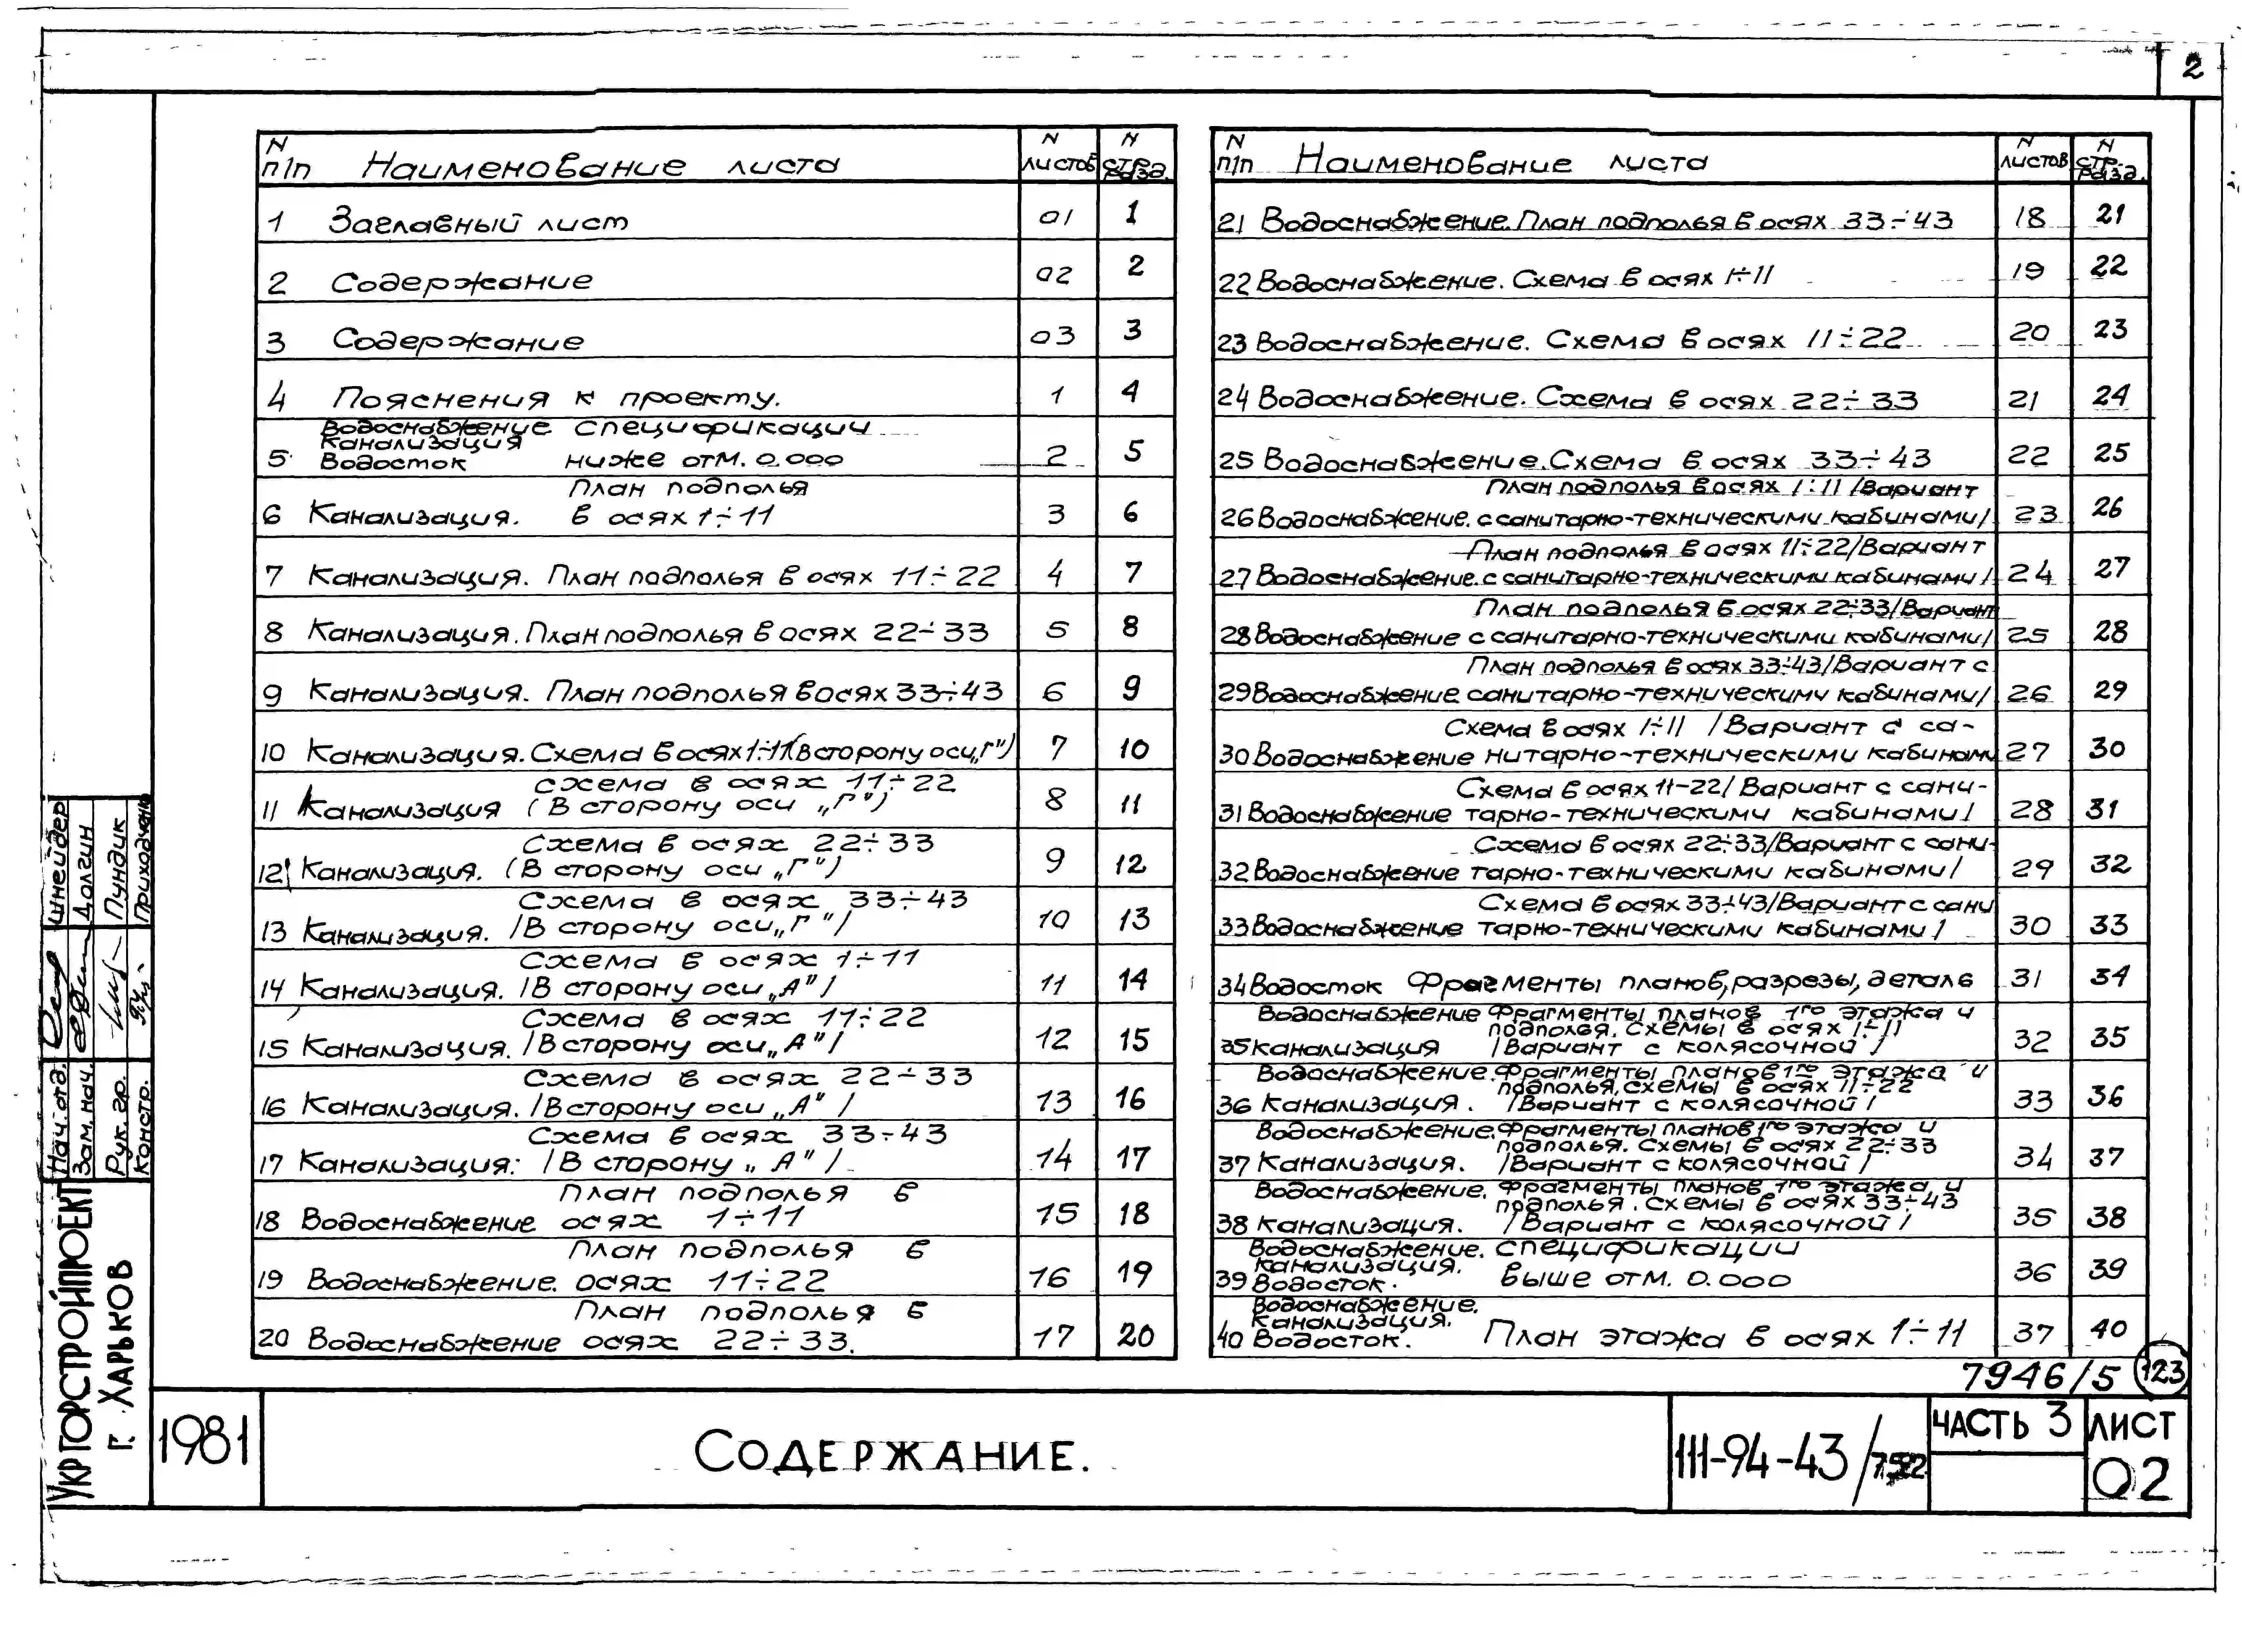 2
N п/п Наименование листа N листов N стр. разд.
1 Заглавный лист 01 1
2 Содержание 02 2
3 Содержание 03 3
4 Пояснения к проекту. 1 4
Водоснабжение спецификации
Канализация
5 Водосток ниже отм. 0.000 2 5
План подполья
6 Канализация. в осях 1÷11 3 6
7 Канализация. План подполья в осях 11÷22 4 7
8 Канализация. План подполья в осях 22÷33 5 8
9 Канализация. План подполья в осях 33÷43 6 9
10 Канализация. Схема в осях 1÷11 (в сторону оси „Г") 7 10
схема в осях 11÷22
11 Канализация (В сторону оси „Г") 8 11
Схема в осях 22÷33
12 Канализация. (В сторону оси „Г") 9 12
Схема в осях 33÷43
13 Канализация. /В сторону оси „Г"/ 10 13
Схема в осях 1÷11
14 Канализация. /В сторону оси „А"/ 11 14
Схема в осях 11÷22
15 Канализация. /В сторону оси „А"/ 12 15
Схема в осях 22÷33
16 Канализация. /В сторону оси „А"/ 13 16
Схема в осях 33÷43
17 Канализация: /В сторону „А"/ 14 17
План подполья в
18 Водоснабжение осях 1÷11 15 18
План подполья в
19 Водоснабжение. осях 11÷22 16 19
План подполья в
20 Водоснабжение осях 22÷33. 17 20
N п/п Наименование листа N листов N стр. разд.
21 Водоснабжение. План подполья в осях 33÷43 18 21
22 Водоснабжение. Схема в осях 1÷11 19 22
23 Водоснабжение. Схема в осях 11÷22 20 23
24 Водоснабжение. Схема в осях 22÷33 21 24
25 Водоснабжение. Схема в осях 33÷43 22 25
План подполья в осях 1÷11 /Вариант
26 Водоснабжение. с санитарно-техническими кабинами/ 23 26
План подполья в осях 11÷22/Вариант
27 Водоснабжение. с санитарно-техническими кабинами/ 24 27
План подполья в осях 22÷33/Вариант
28 Водоснабжение с санитарно-техническими кабинами/ 25 28
План подполья в осях 33÷43/Вариант с
29 Водоснабжение санитарно-техническими кабинами/ 26 29
Схема в осях 1÷11 /Вариант с са-
30 Водоснабжение нитарно-техническими кабинами 27 30
Схема в осях 11-22/ Вариант с сани-
31 Водоснабжение тарно-техническими кабинами/ 28 31
Схема в осях 22÷33/Вариант с сани-
32 Водоснабжение тарно-техническими кабинами/ 29 32
Схема в осях 33÷43/Вариант с сани
33 Водоснабжение тарно-техническими кабинами/ 30 33
34 Водосток Фрагменты планов, разрезы, детале 31 34
Водоснабжение Фрагменты планов 1го этажа и
подполья. Схемы в осях 1÷11
35 Канализация /Вариант с колясочной/ 32 35
Водоснабжение. Фрагменты планов 1го этажа и
подполья, схемы в осях 11÷22
36 Канализация. /Вариант с колясочной/ 33 36
Водоснабжение. Фрагменты планов 1го этажа и
подполья. Схемы в осях 22÷33
37 Канализация. /Вариант с колясочной/ 34 37
Водоснабжение. Фрагменты планов 1го этажа и
подполья. Схемы в осях 33÷43
38 Канализация. /Вариант с колясочной/ 35 38
Водоснабжение. спецификации
Канализация.
39 Водосток. выше отм. 0.000 36 39
Водоснабжение.
Канализация.
40 Водосток. План этажа в осях 1÷11 37 40
7946/5 123
Укргорстройпроект
г. Харьков
Нач. отд. Шнейдер
Зам. нач. Долгин
Рук. гр. Пундик
Констр. Приходченко
1981
Содержание.
111-94-43/
Часть 3
Лист
02